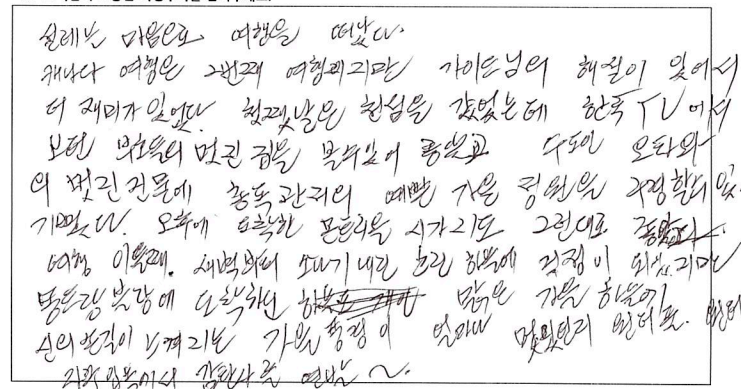 설레는 마음으로 여행을 떠났다.
캐나다 여행은 2번째 여행이지만 가이드님의 해설이 있어서
더 재미가 있었다. 첫쨋날은 천섬을 갔었는데 한국 TV에서
보던 부호들의 멋진 집을 볼수있어 좋았고 수도인 오타와
의 멋진건물에 총독관저의 예쁜 가을 정원을 구경할수 있
기뻤다. 오후에 도착한 몬트리올 시가지도 그런대로 좋았다.
여행 이틀째. 새벽부터 소나기 내린 흐린 하늘에 걱정이 되었지만
몽트랑블랑에 도착하니 맑은 가을 하늘에
신의 손길이 느껴지는 가을풍경이 얼마나 멋있던지 원더풀. 원더
감탄사를 연발 ~.